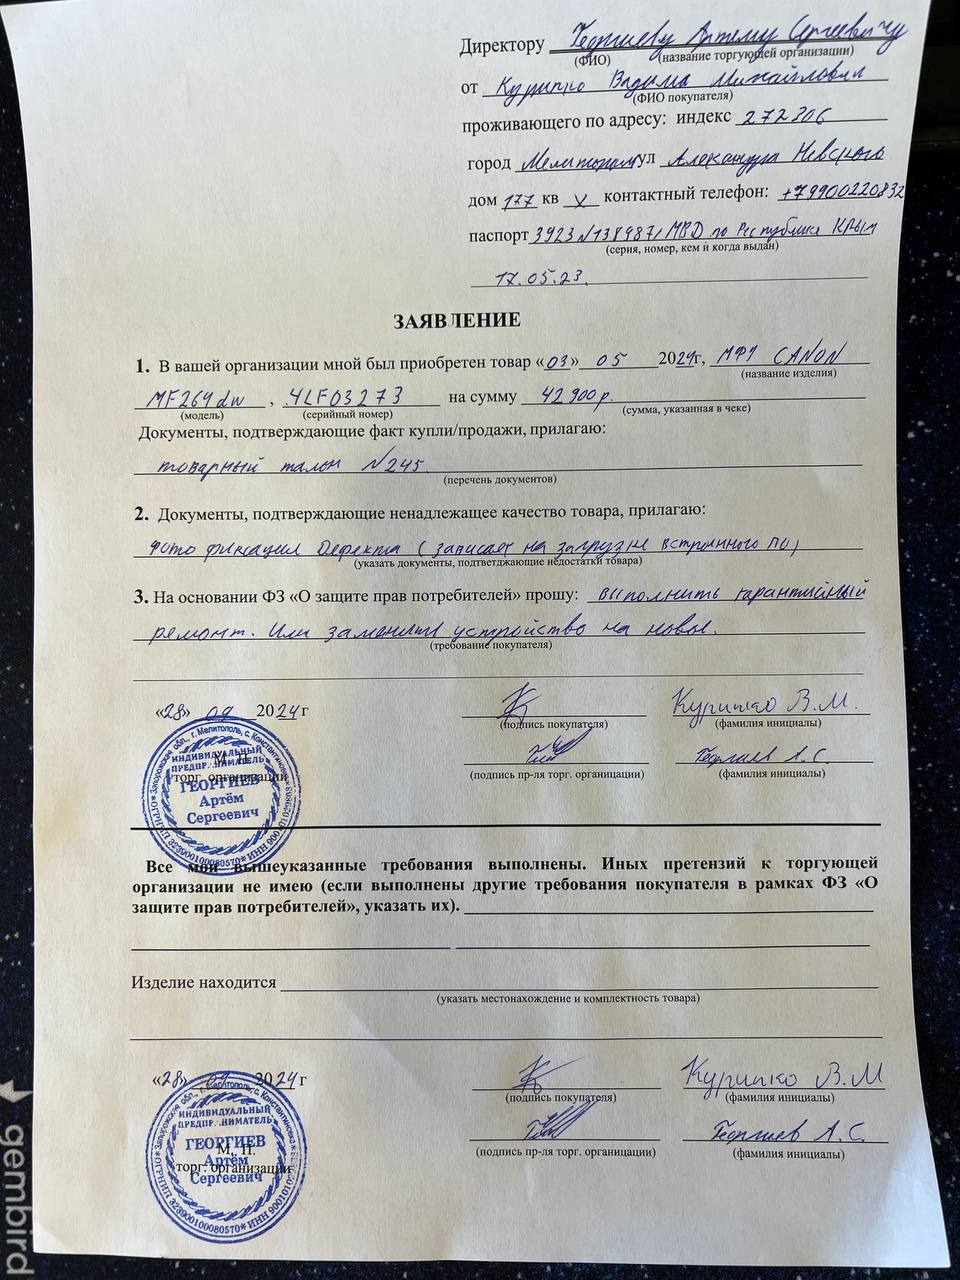 Директору Георгиеву Артему Сергеевичу
(ФИО) (название торгующей организации)
от Курипко Вадима Михайловича
(ФИО покупателя)
проживающего по адресу: индекс 272306
город Мелитополь ул Александра Невского
дом 177 кв X контактный телефон: +79900220832
паспорт 3923 N138987, МВД по Республике Крым
(серия, номер, кем и когда выдан)
17.05.23.
ЗАЯВЛЕНИЕ
1. В вашей организации мной был приобретен товар «03» 05 2024г, МФУ CANON
(название изделия)
MF264dw , 4LF03273 на сумму 42 900 р.
(модель) (серийный номер) (сумма, указанная в чеке)
Документы, подтверждающие факт купли/продажи, прилагаю:
товарный талон N245
(перечень документов)
2. Документы, подтверждающие ненадлежащее качество товара, прилагаю:
Фото фиксация Дефекта (зависает на загрузке встроенного ПО)
(указать документы, подтветджающие недостатки товара)
3. На основании ФЗ «О защите прав потребителей» прошу: выполнить гарантийный
ремонт. Или заменить устройство на новое.
(требование покупателя)
«28» 09 2024г Курипко В.М.
(подпись покупателя) (фамилия инициалы)
М. П. Георгиев А.С.
торг. организации (подпись пр-ля торг. органицации) (фамилия инициалы)
Запорожская обл., г. Мелитополь, с. Константиновка
ИНДИВИДУАЛЬНЫЙ
ПРЕДПРИНИМАТЕЛЬ
ГЕОРГИЕВ
Артём
Сергеевич
ОГРНИП 323900100080570 * ИНН
Все мои вышеуказанные требования выполнены. Иных претензий к торгующей
организации не имею (если выполнены другие требования покупателя в рамках ФЗ «О
защите прав потребителей», указать их).
Изделие находится
(указать местонахождение и комплектность товара)
«28» 09 2024г Курипко В.М
(подпись покупателя) (фамилия инициалы)
М. П. Георгиев А.С.
торг. организации (подпись пр-ля торг. органицации) (фамилия инициалы)
Запорожская обл., г. Мелитополь, с. Константиновка
ИНДИВИДУАЛЬНЫЙ
ПРЕДПРИНИМАТЕЛЬ
ГЕОРГИЕВ
Артём
Сергеевич
ОГРНИП 323900100080570 * ИНН
gembird